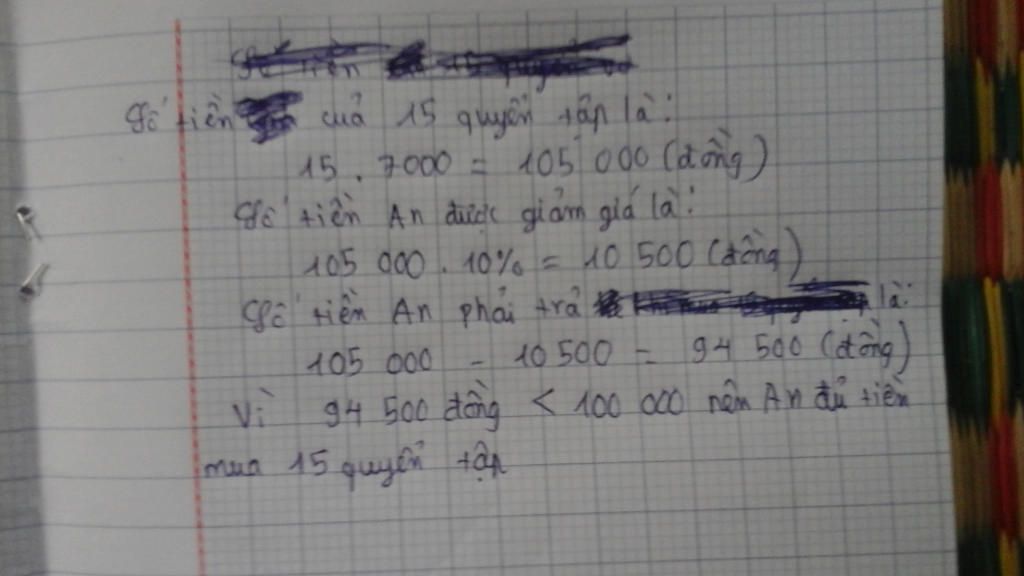 Số tiền của 15 quyển tập là:
15 . 7000 = 105 000 (đồng)
Số tiền An được giảm giá là:
105 000 . 10% = 10 500 (đồng)
Số tiền An phải trả là:
105 000 - 10 500 = 94 500 (đồng)
Vì 94 500 đồng < 100 000 nên An đủ tiền
mua 15 quyển tập